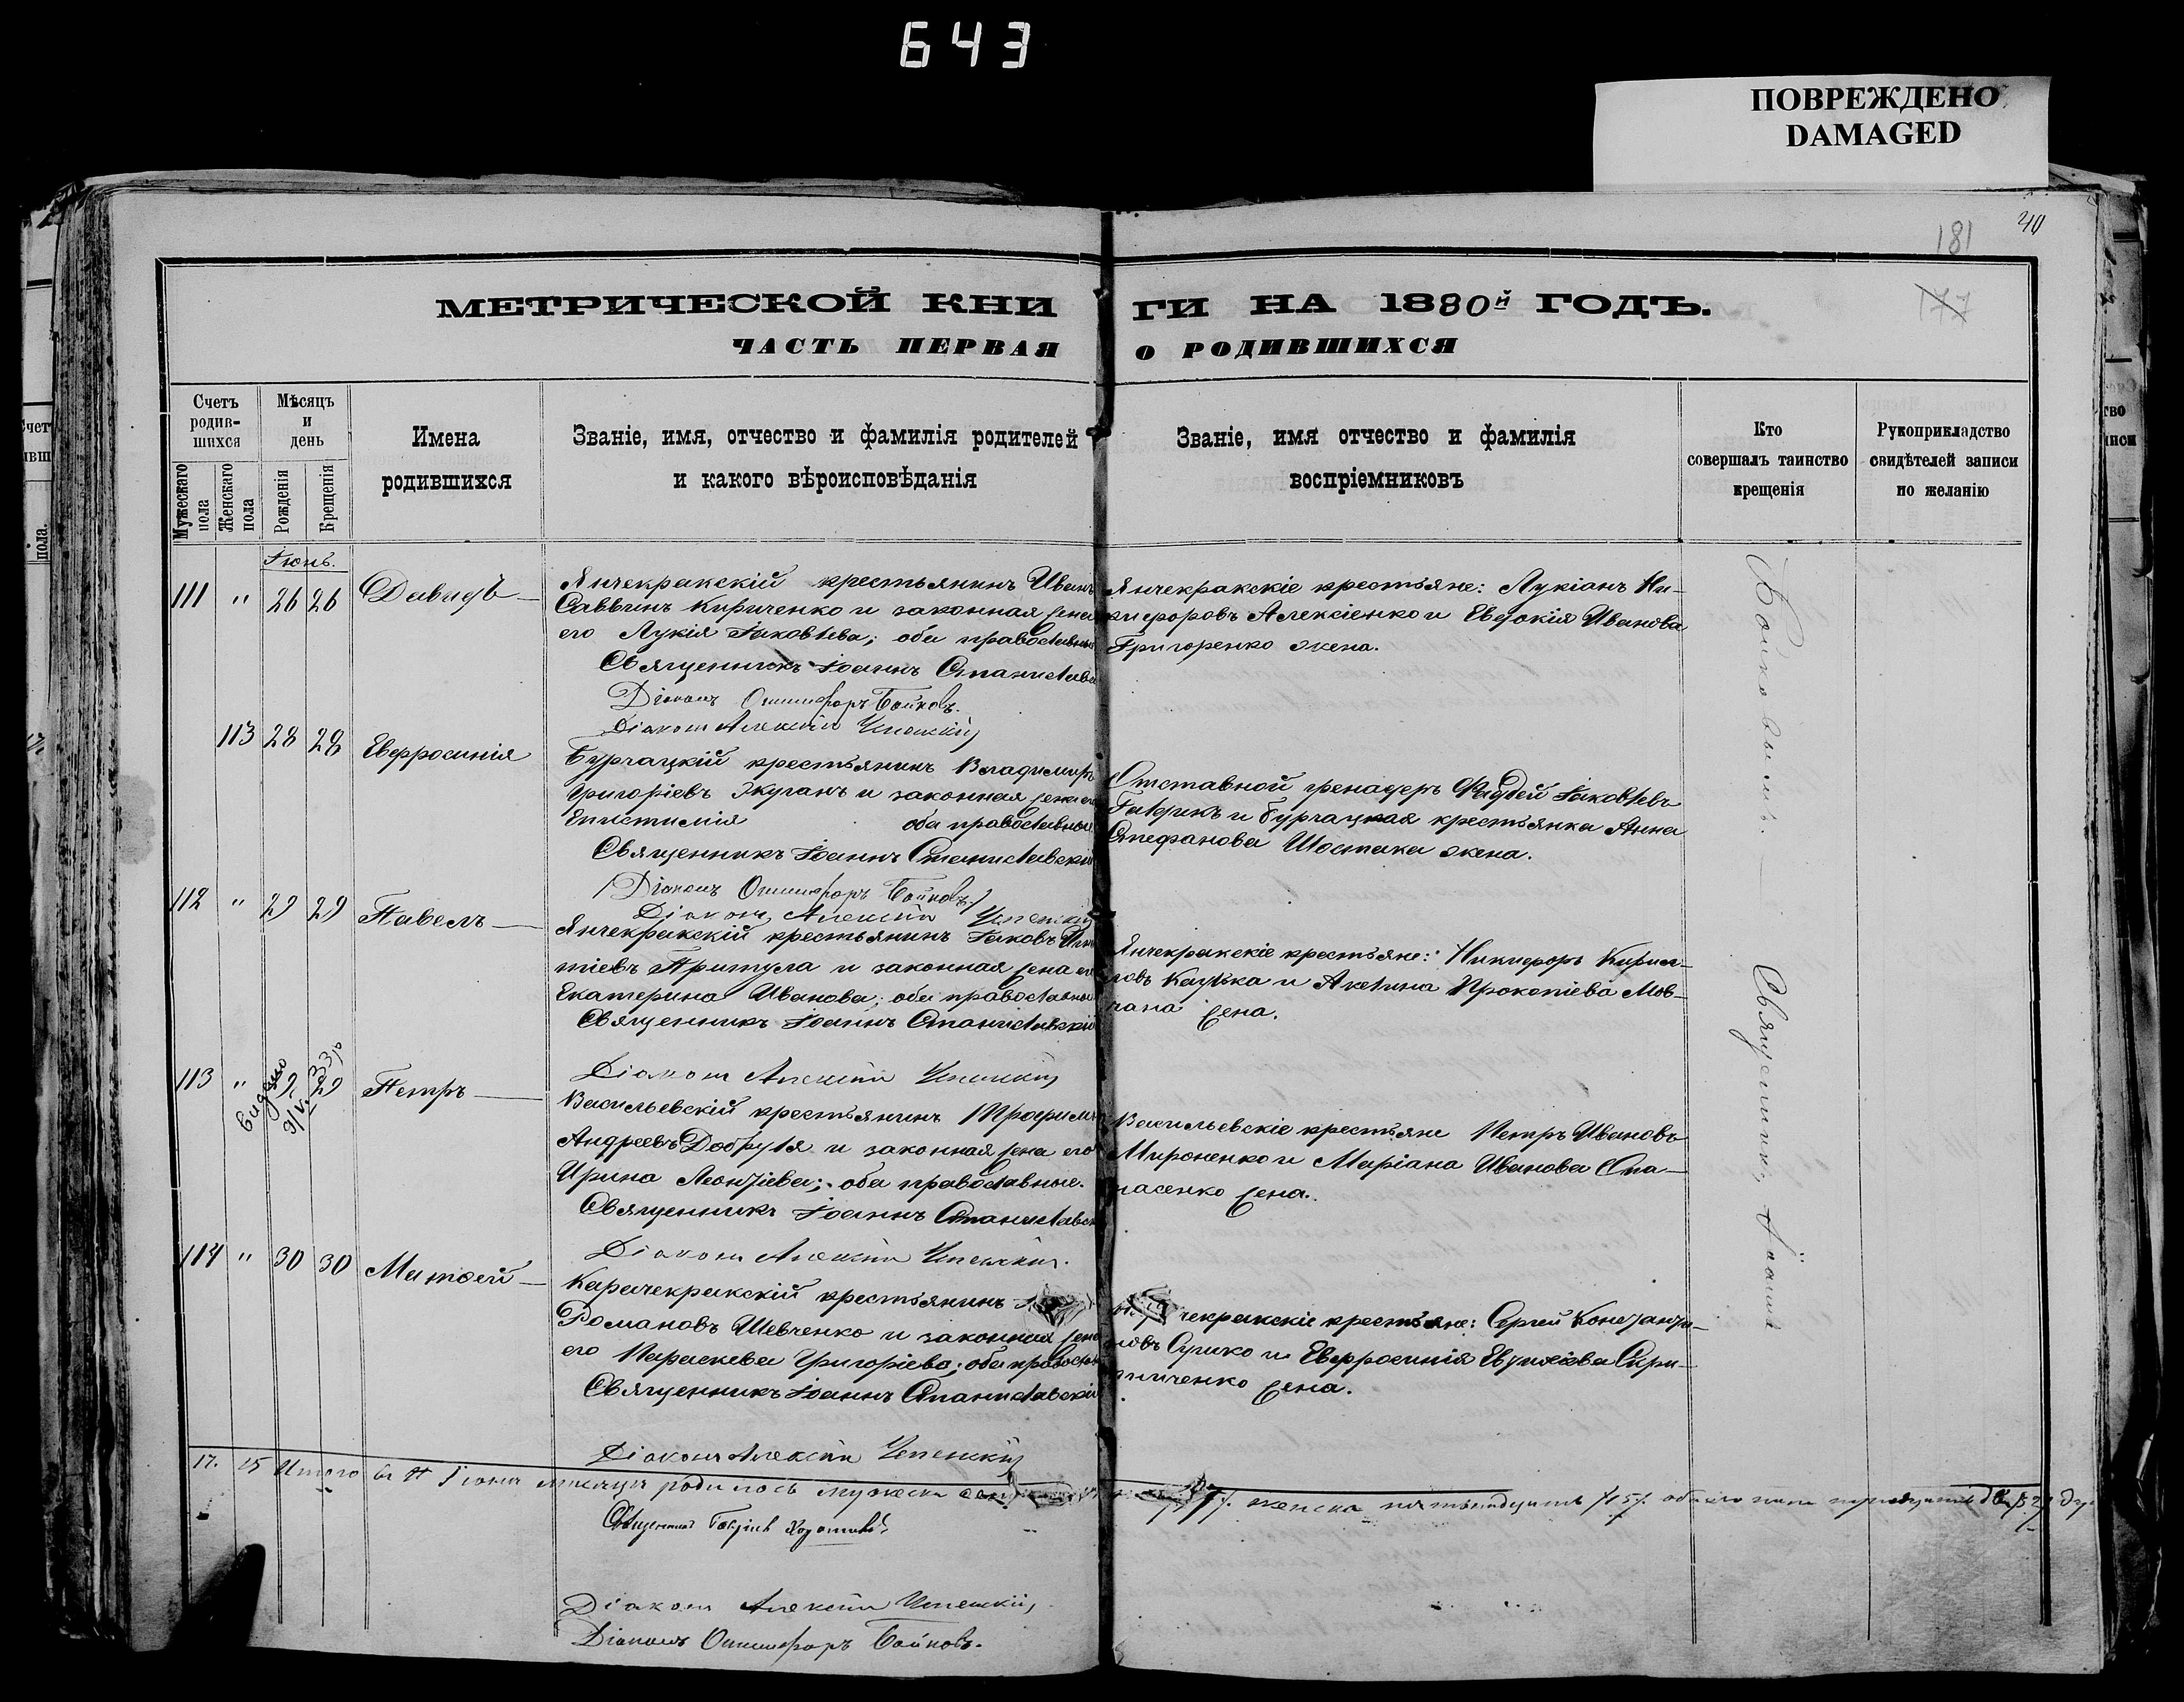 643
ПОВРЕЖДЕНО
DAMAGED
40
181
177
МЕТРИЧЕСКОЙ КНИ ГИ НА 1880й ГОДЪ.
ЧАСТЬ ПЕРВАЯ О РОДИВШИХСЯ
Счетъ родив- шихся
Мужескаго пола
Женскаго пола
Мѣсяцъ и день
Рожденія
Крещенія
Имена родившихся
Званіе, имя, отчество и фамилія родителей
и какого вѣроисповѣданія
Званіе, имя отчество и фамилія
воспріемниковъ
Кто
совершалъ таинство
крещенія
Рукоприкладство
свидѣтелей записи
по желанію
Іюнь.
111 " 26 26 Давидъ
Янчекракскій крестьянинъ Иванъ
Саввинъ Кириченко и законная жена
его Лукія Іаковлева; оба православные
Священникъ Іоаннъ Станиславскій
Діаконъ Онисифоръ Бойковъ.
Діаконъ Алексій Успенскій
Янчекракскіе крестьяне: Лукіанъ Ни-
кифоровъ Алексіенко и Евдокія Иванова
Григоренко жена.
113 28 28 Евфросинія
Бурчацкій крестьянинъ Владимиръ
Григоріевъ Жуганъ и законная жена его
Епистимія оба православные
Священникъ Іоаннъ Станиславскій
Діаконъ Онисифоръ Бойковъ
Діаконъ Алексій Успенскій
Отставной гренадеръ Фаддей Іаковлевъ
и бурчацкая крестьянка Анна
Стефанова Шостака жена.
112 " 29 29 Павелъ
Янчекракскій крестьянинъ Іаковъ Игна
тіевъ Притула и законная жена его
Екатерина Иванова; оба православные
Священникъ Іоаннъ Станиславскій
Діаконъ Алексій Успенскій
Янчекракскіе крестьяне: Никифоръ Кирил-
ловъ Кацука и Акилина Прокопіева Мов-
чана жена.
113 " 29 29 Петръ
видано
Васильевскій крестьянинъ Трофимъ
Андреевъ Добруля и законная жена его
Ирина Леонтіева; оба православные.
Священникъ Іоаннъ Станиславскій
Діаконъ Алексій Успенскій.
Васильевскіе крестьяне Петръ Ивановъ
Мироненко и Маріана Иванова Опа-
насенко жена.
114 " 30 30 Матѳей
Карачекракскій крестьянинъ
Романовъ Шевченко и законная жена
его Параскева Григоріева; оба православ
Священникъ Іоаннъ Станиславскій
Діаконъ Алексій Успенскій
чекракскіе крестьяне: Сергей Константи-
новъ Сушко и Евфросинія Евфиміева Скри-
пниченко жена.
Бойковымъ. Священникъ Іоаннъ
17. 15 Итого въ Іюнѣ мѣсяцѣ родилось мужеска
женска пятьнадцать /15/. обоего пола тридцать два /32/ душ
Священникъ Гавріилъ
Діаконъ Алексій Успенскій,
Діаконъ Онисифоръ Бойковъ.